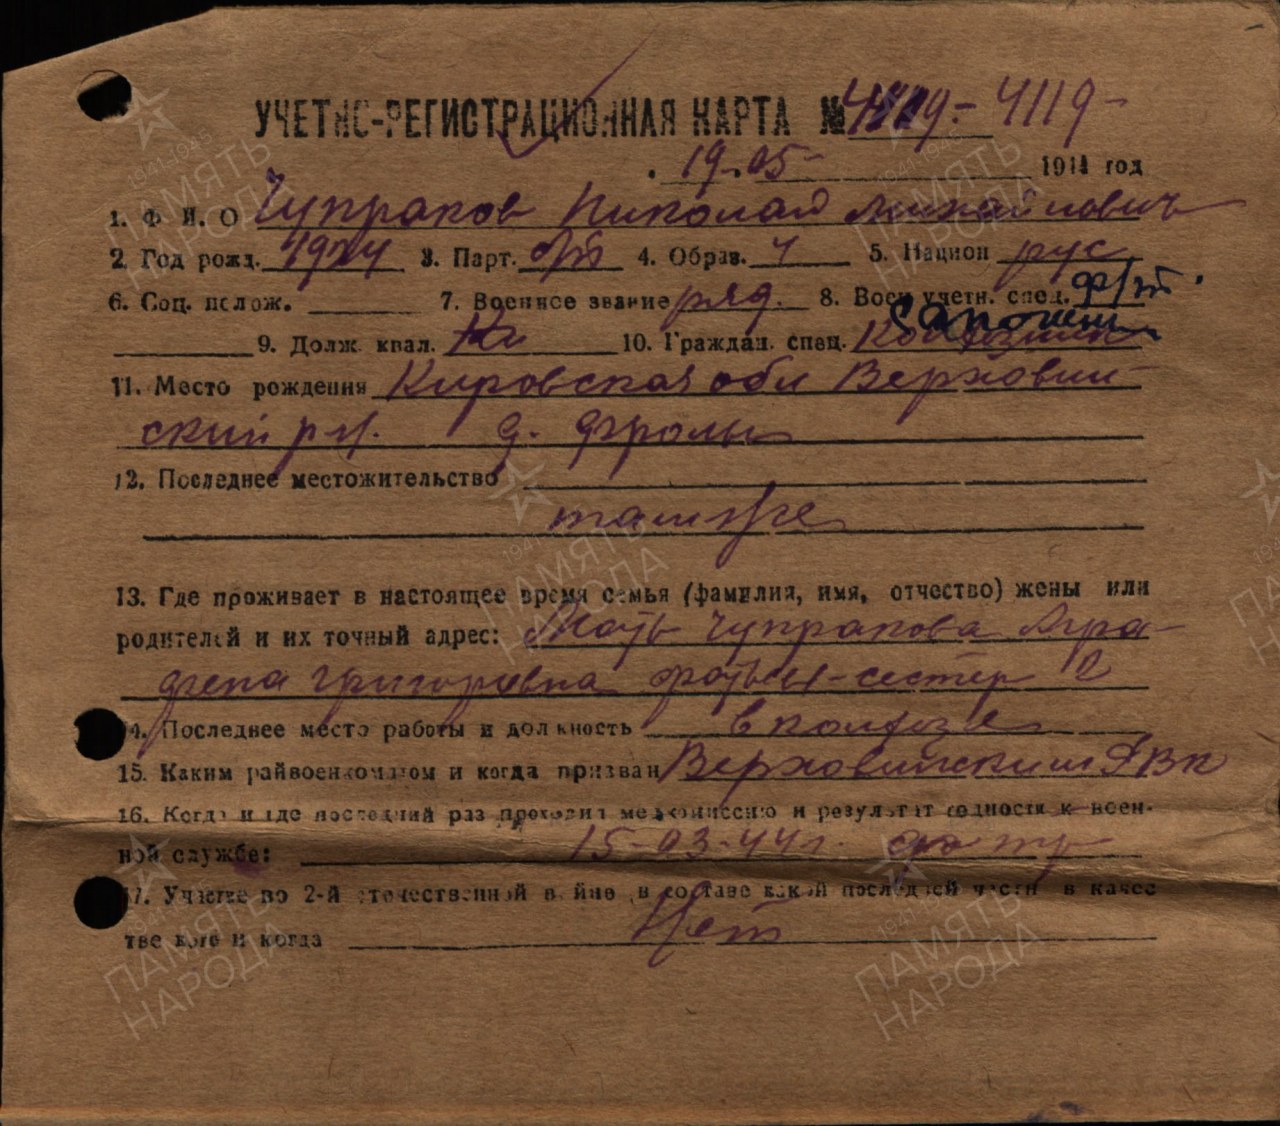 УЧЕТНО-РЕГИСТРАЦИОННАЯ КАРТА № 4119 - 4119 -
19.05 - 1944 год
1. Ф. И. О Чупраков Николай Михайлович
2. Год рожд. 1924 3. Парт. б/п 4. Образ. 4 5. Национ рус
6. Соц. полож. 7. Военное звание ряд. 8. Воен. учетн. спец.
Сапожни
9. Долж. квал. 10. Граждан. спец.
11. Место рождения Кировская обл Верховин-
ский р-н. д.
12. Последнее местожительство
там же
13. Где проживает в настоящее время семья (фамилия, имя, отчество) жены или
родителей и их точный адрес: Мать Чупракова Агра-
фена Григорьевна братьи-сестер 2
14. Последнее место работы и должность в колхозе
15. Каким райвоенкоматом и когда призван Верховинским РВК
16. Когда и где последний раз проходил медкомиссию и результат годности к воен-
ной службе: 15-03-44 г.
17. Участие во 2-й отечественной войне, в составе какой последней части, в качес
тве кого и когда Нет
1941-1945
ПАМЯТЬ
НАРОДА